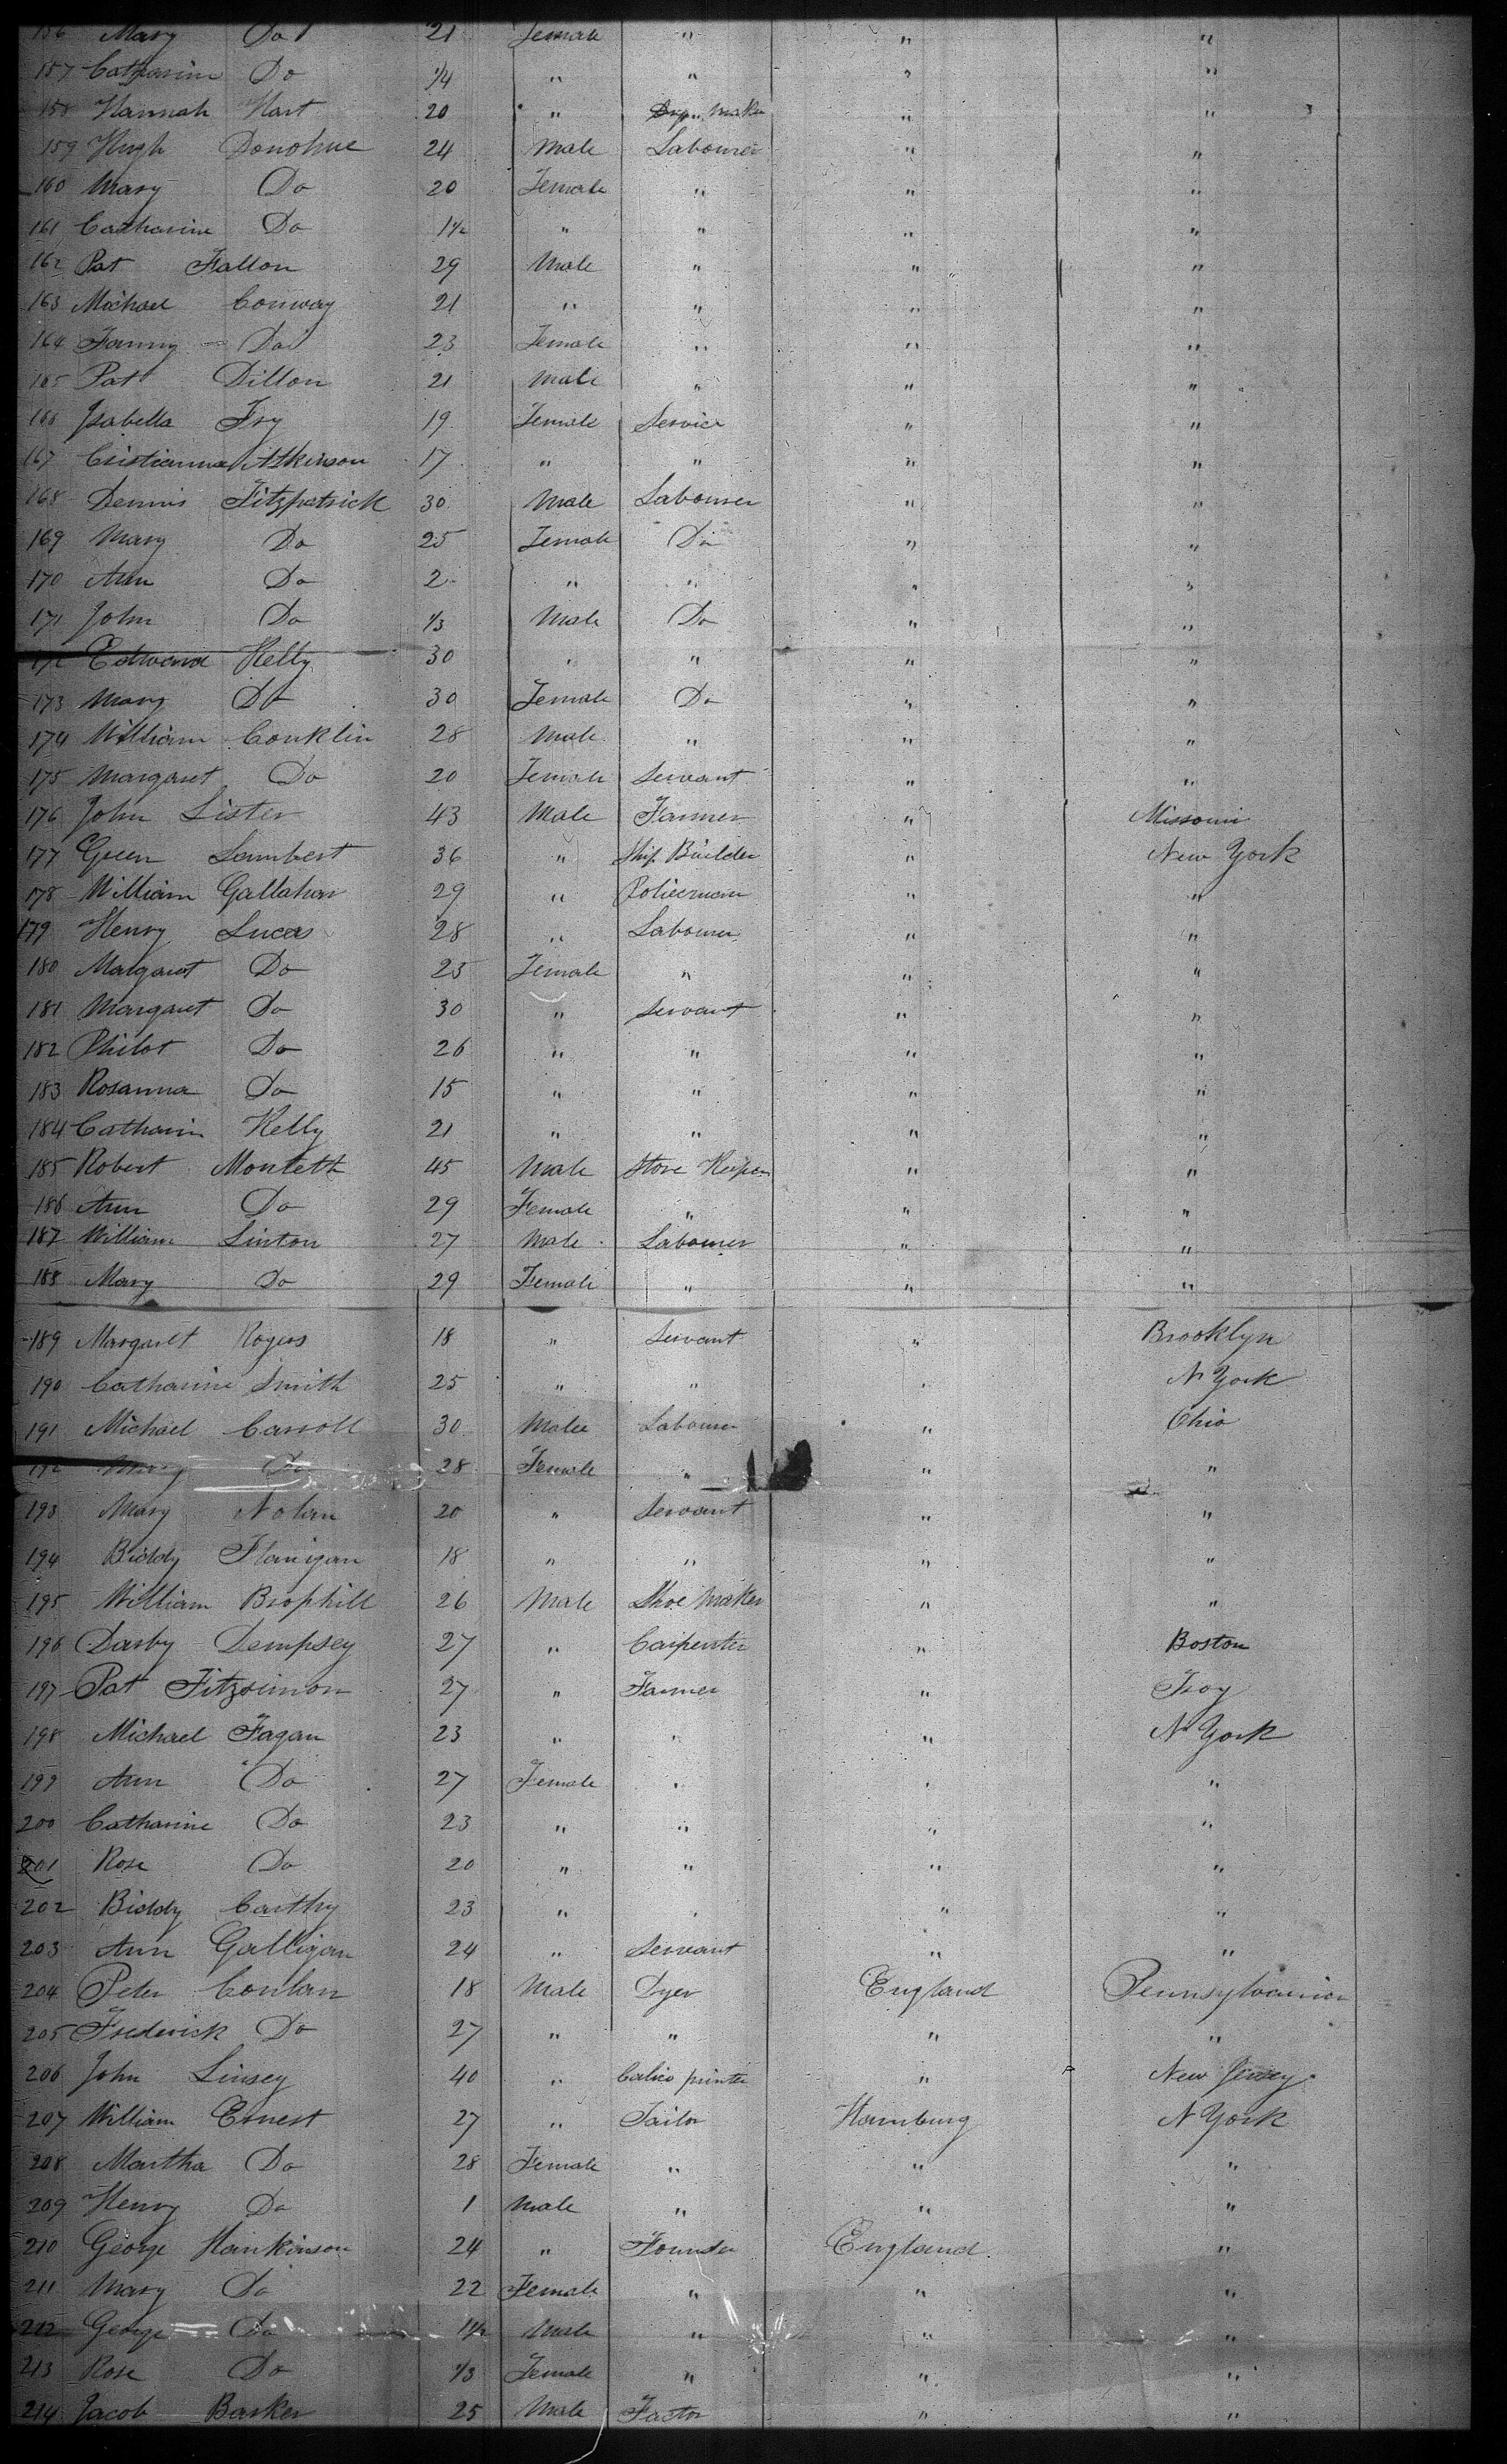 156 Mary Do 21 Female " " "
157 Catharine Do 1/4 " " " "
158 Hannah Hart 20 " maker " "
159 Hugh Donohue 24 Male Labourer " "
160 Mary Do 20 Female " " "
161 Catharine Do 1 1/2 " " " "
162 Pat Fallon 29 Male " " "
163 Michael Conway 21 " " " "
164 Fanny Do 23 Female " " "
165 Pat Dillon 21 Male " " "
166 Isabella Fry 19 Female Service " "
167 Cristianna Atkinson 17 " " " "
168 Dennis Fitzpatrick 30 Male Labourer " "
169 Mary Do 25 Female Do " "
170 Ann Do 2 " " " "
171 John Do 1/3 Male Do " "
172 Edward Kelly 30 " " " "
173 Mary Do 30 Female Do " "
174 William Conklin 28 Male " " "
175 Margaret Do 20 Female Servant " "
176 John Lister 43 Male Farmer " Missouri
177 Green Lambert 36 " Ship Builder " New York
178 William Gallahar 29 " Policeman " "
179 Henry Lucas 28 " Labourer " "
180 Margaret Do 25 Female " " "
181 Margaret Do 30 " Servant " "
182 Philot Do 26 " " " "
183 Rosanna Do 15 " " " "
184 Catharin Kelly 21 " " " "
185 Robert Monteth 45 Male Store Keeper " "
186 Ann Do 29 Female " " "
187 William Linton 27 Male Labourer " "
188 Mary Do 29 Female " " "
189 Margaret Rogers 18 " Servant " Brooklyn
190 Catharine Smith 25 " " " N York
191 Michael Carroll 30 Male Labourer " Ohio
192 Mary Do 28 Female " " "
193 Mary Nolan 20 " Servant " "
194 Biddy Flanigan 18 " " " "
195 William Brophill 26 Male Shoe Maker " "
196 Darby Dempsey 27 " Carpenter " Boston
197 Pat Fitzsimon 27 " Farmer " Troy
198 Michael Fagan 23 " " " N York
199 Ann Do 27 Female " " "
200 Catharine Do 23 " " " "
201 Rose Do 20 " " " "
202 Biddy Carthy 23 " " " "
203 Ann Galligan 24 " Servant " "
204 Peter Conlan 18 Male Dyer England Pennsylvania
205 Frederick Do 27 " " " "
206 John Linsey 40 " Calico printer " New Jersey
207 William Ernest 27 " Tailor Hamburg N York
208 Martha Do 28 Female " " "
209 Henry Do 1 Male " " "
210 George Hankinson 24 " Founder England "
211 Mary Do 22 Female " " "
212 George Do 1 1/2 Male " " "
213 Rose Do 1/3 Female " " "
214 Jacob Barker 25 Male Factor " "